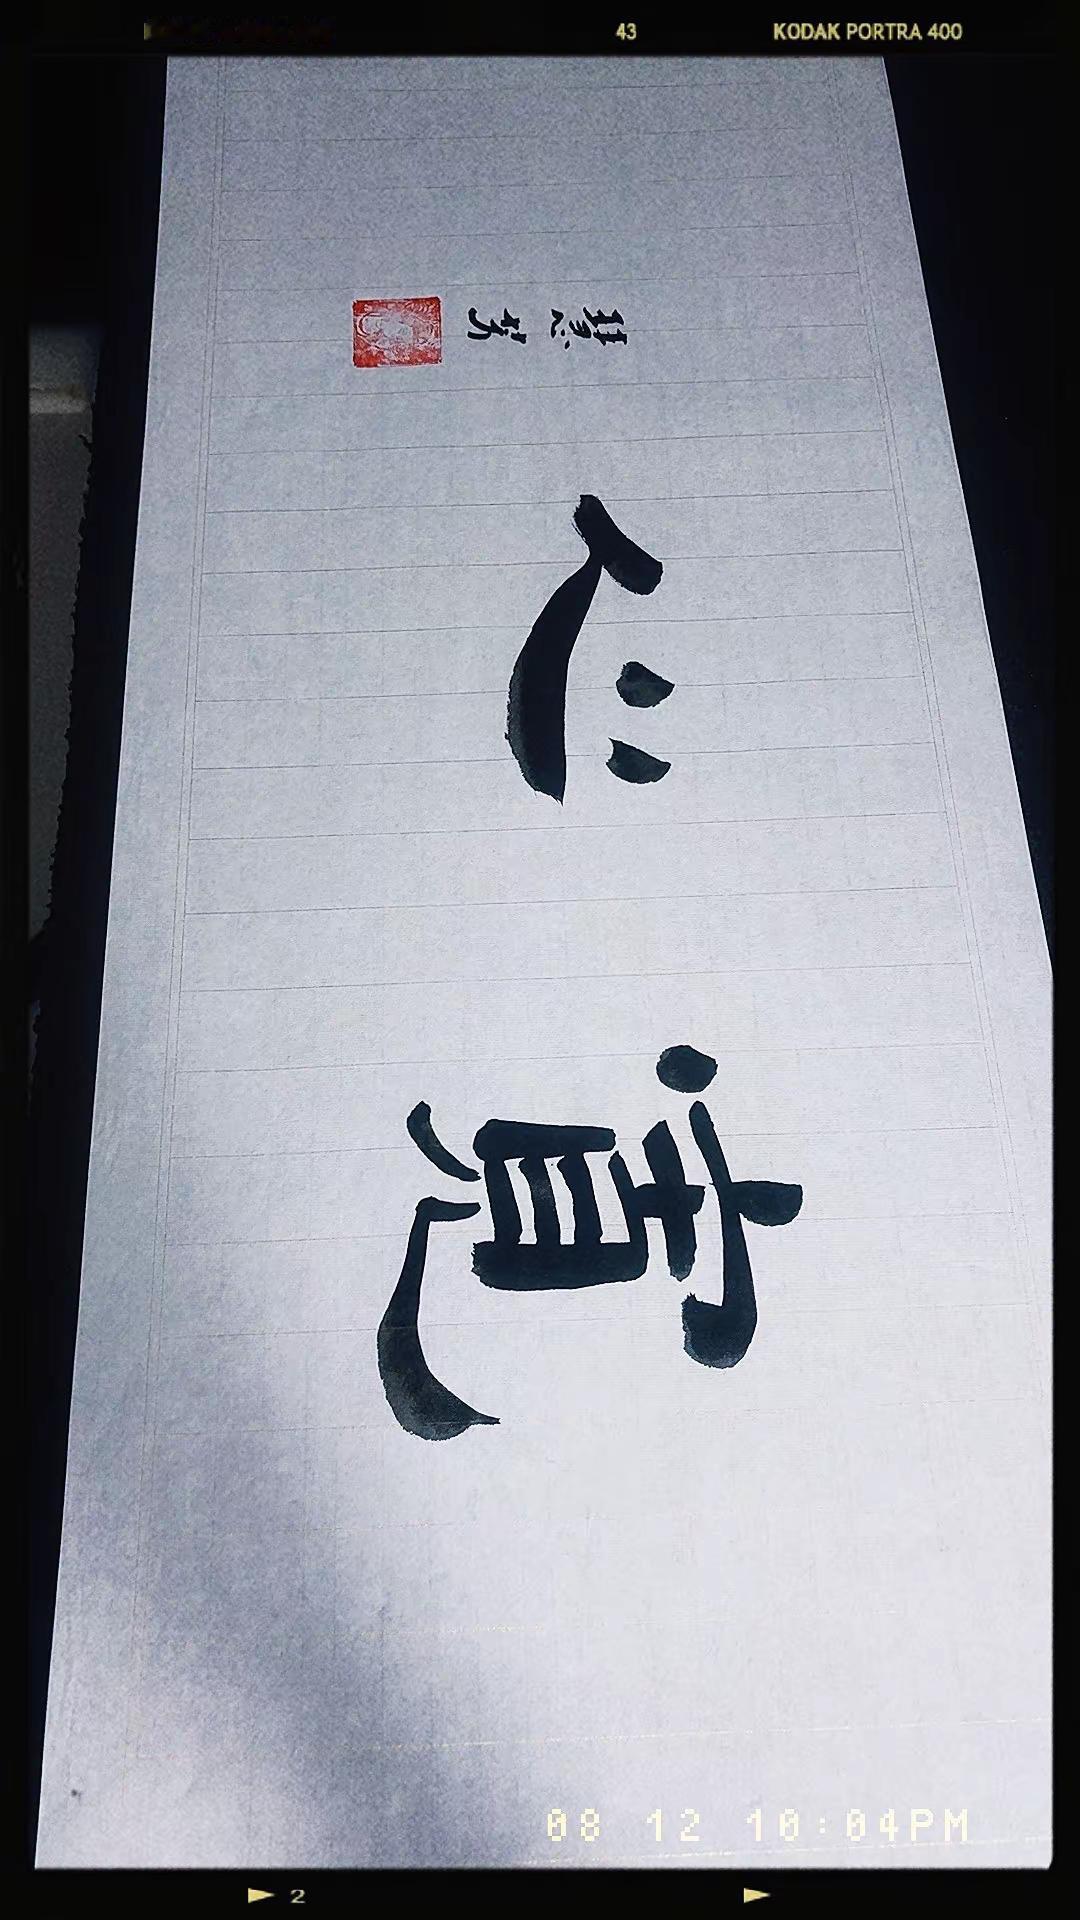 43 KODAK PORTRA 400
寬心
慧芳
08 12 10:04PM
2